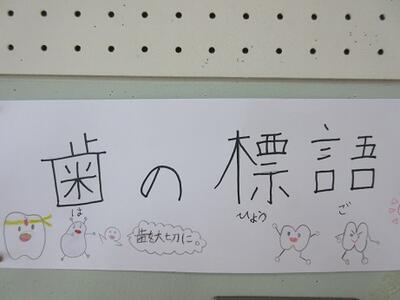 歯の標語
は ひょう ご
歯を大切に。